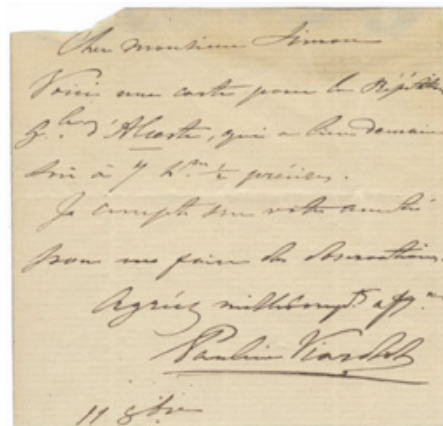 Cher Monsieur Simon
Voici une carte pour la Répétition
g.le d'Alceste, qui a lieu demain
soir à 7 h.res ½ précises.
Je compte sur votre amitié
pour me faire des observations.
Agréez mille compts aff.
Pauline Viardot
11 8bre